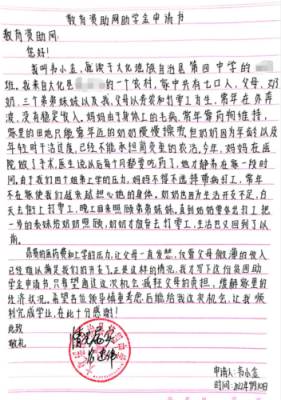 教育资助网助学金申请书
教育资助网:
您好!
我叫韦小金,就读于大化瑶族自治县第四中学的
班。我来自大化县 的一个农村,家中共有七口人,父母、奶奶
三个弟弟妹妹以及我,父母以务农和打零工为生,常年在外奔
波,没有稳定收入。妈妈由于身体上的毛病,常年靠药物维持,
家里的田地只能靠年迈的奶奶慢慢操劳,但奶奶因为年龄以及
年轻时干活过度,已经不能承担负重的农活。今年,妈妈在医
院做了手术,医生说从后每个月都要吃药了,她才静养在家一段时
间,由于我们四个姐弟上学的压力,妈妈不得不选择带病打工,常年
不在家使我们越来越担心她的身体。奶奶也因为生活开支不足,白
天去街上打零工,晚上回来照顾弟弟妹妹。直到奶奶
一岁的妹妹给奶奶照顾,奶奶才放弃去打零工,生活也又回到了以
前。
昂贵的医药费和上学的压力,让父母一直发愁,仅靠父母微薄的收入
已经难以满足我们的开支了,正是这样的情况,我才写下这份贫困助
学金申请书,只希望通过这次机会减轻父母的负担,缓解家里的
经济状况。希望各位领导慎重考虑后能给我这次机会,让我顺
利完成学业,在此十分感谢!
此致
敬礼
情况属实
申请人:韦小金
时间: